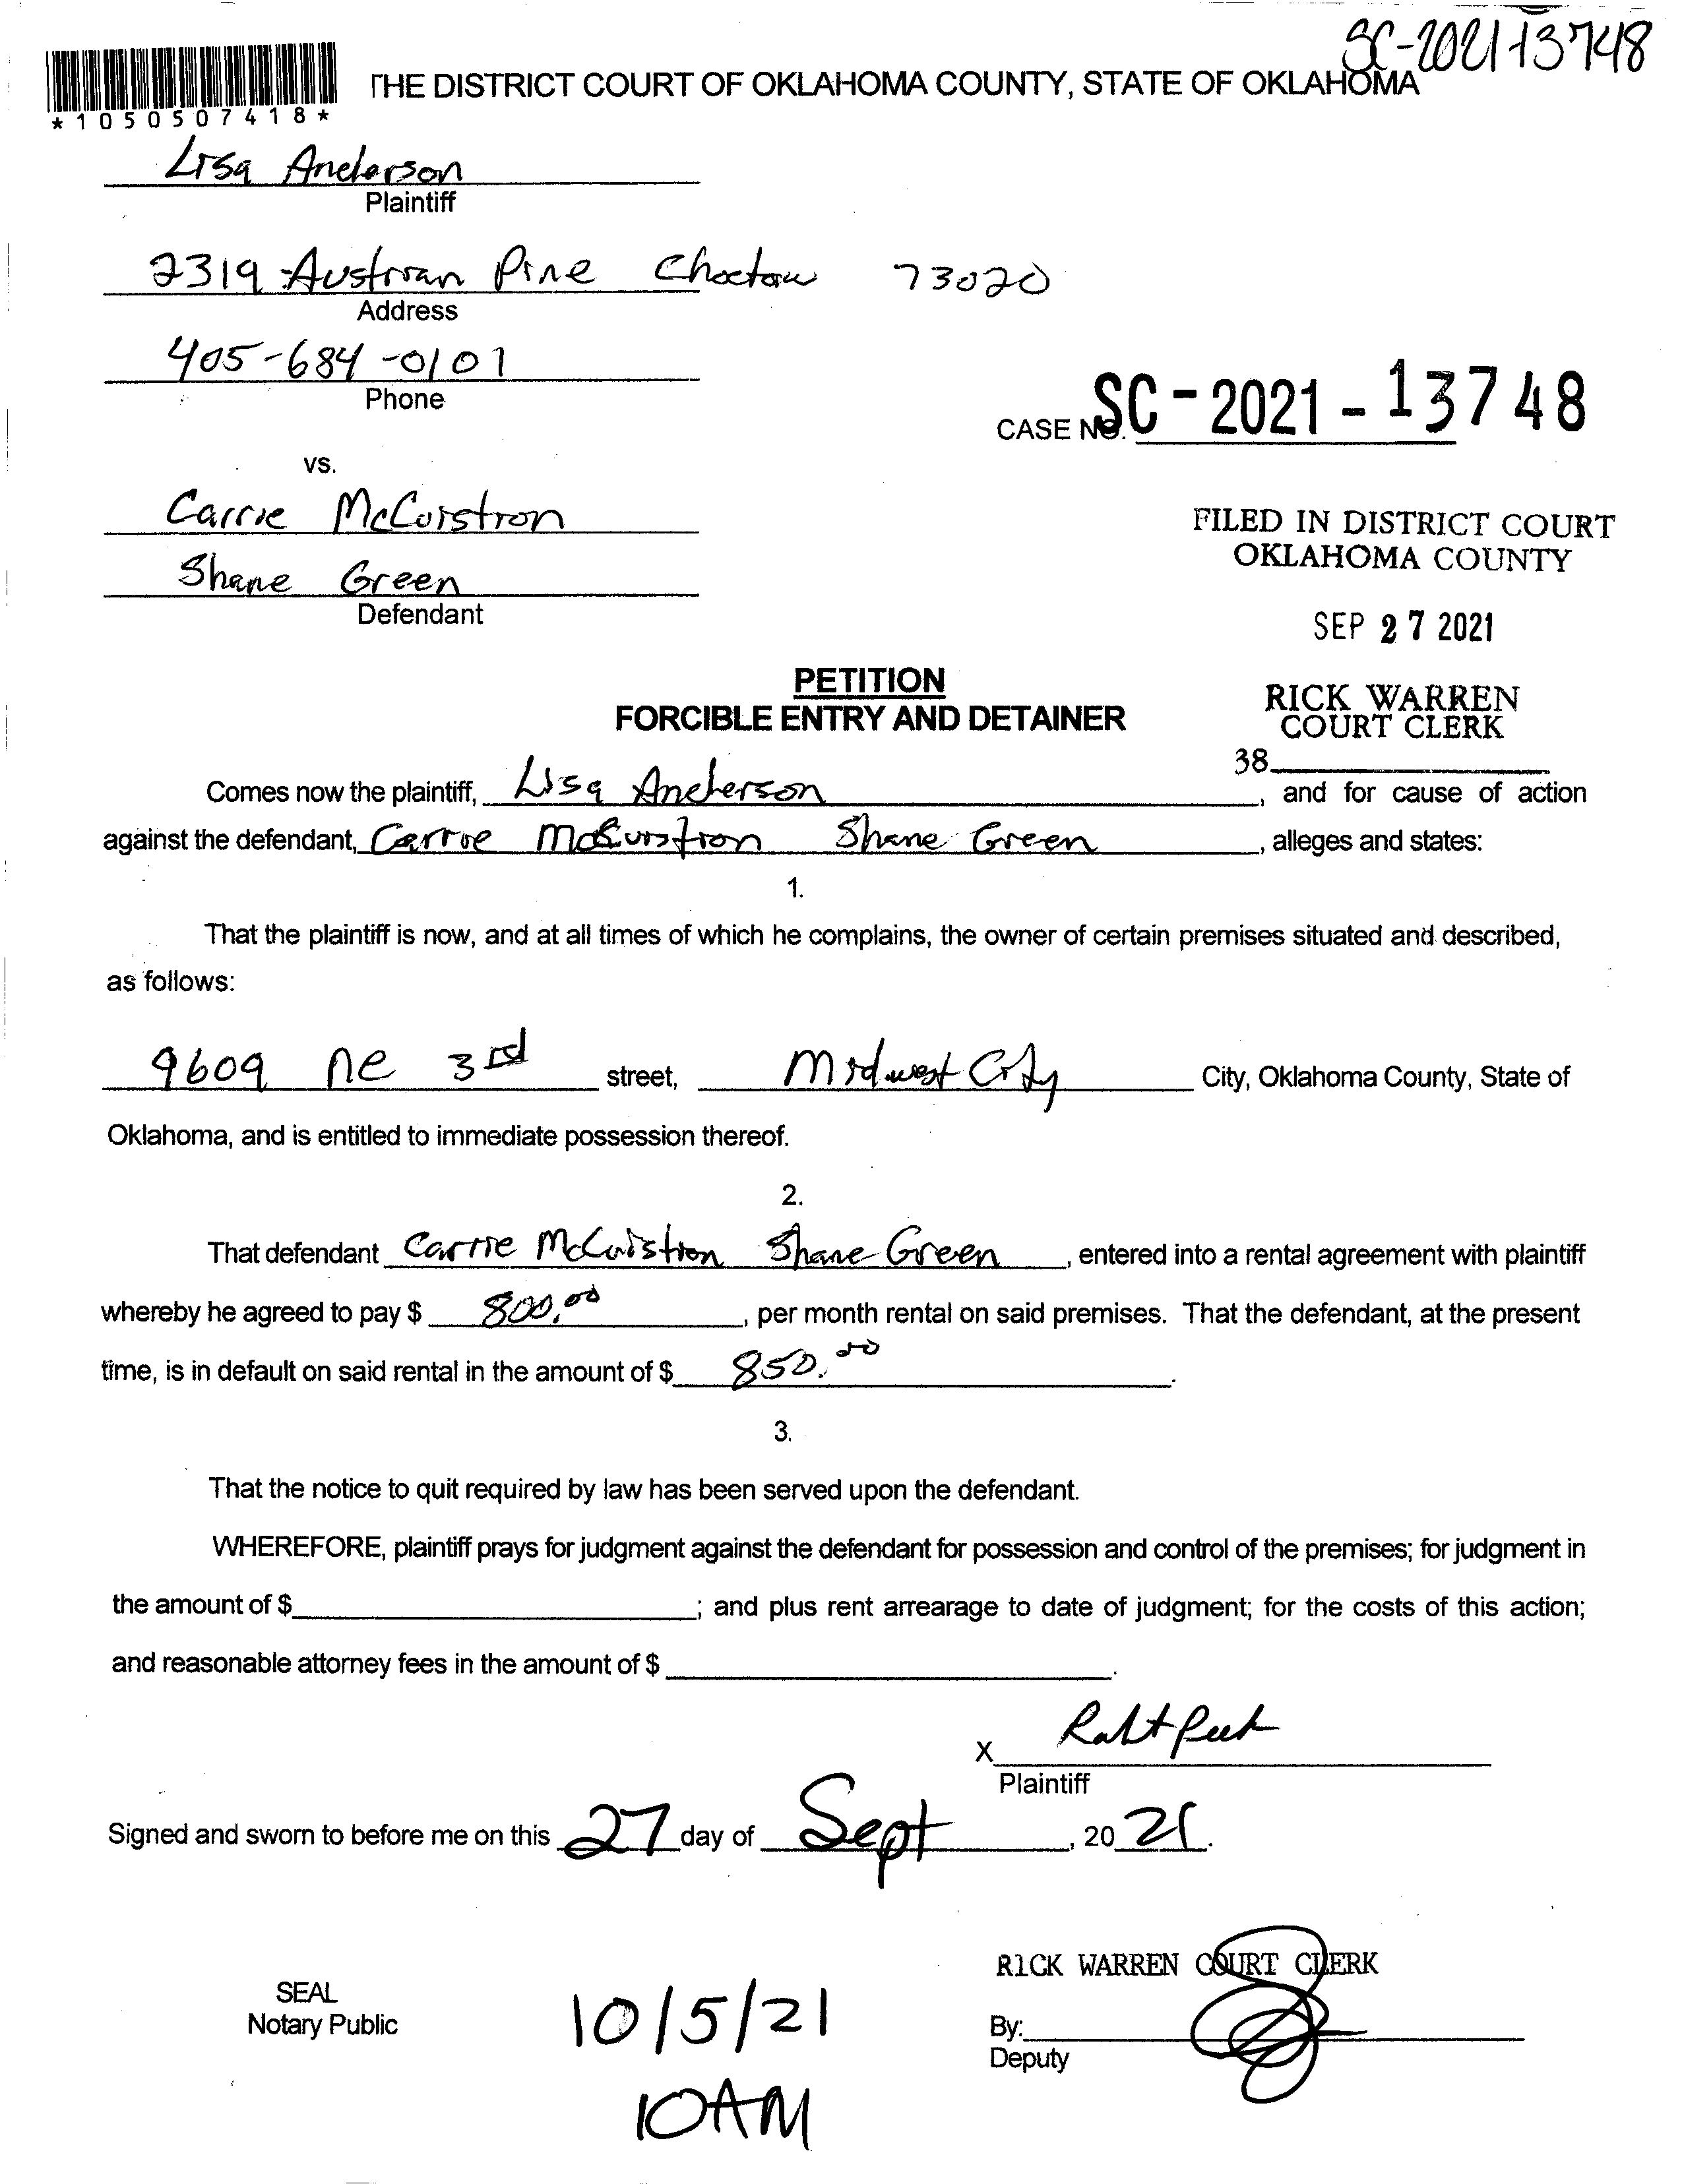 SC-2021-13748
THE DISTRICT COURT OF OKLAHOMA COUNTY, STATE OF OKLAHOMA
*1050507418*
Lisa Anderson
Plaintiff
2319 Austrian Pine Choctaw 73020
Address
405-684-0101
Phone
CASE NO. SC-2021-13748
vs.
Carrie McCuistion
Shane Green
Defendant
FILED IN DISTRICT COURT
OKLAHOMA COUNTY
SEP 27 2021
RICK WARREN
COURT CLERK
38
PETITION
FORCIBLE ENTRY AND DETAINER
Comes now the plaintiff, Lisa Anderson, and for cause of action
against the defendant, Carrie McCuistion Shane Green, alleges and states:
1.
That the plaintiff is now, and at all times of which he complains, the owner of certain premises situated and described,
as follows:
9609 ne 3rd street, Midwest City City, Oklahoma County, State of
Oklahoma, and is entitled to immediate possession thereof.
2.
That defendant Carrie McCuistion Shane Green, entered into a rental agreement with plaintiff
whereby he agreed to pay $ 800.00, per month rental on said premises. That the defendant, at the present
time, is in default on said rental in the amount of $ 850.00.
3.
That the notice to quit required by law has been served upon the defendant.
WHEREFORE, plaintiff prays for judgment against the defendant for possession and control of the premises; for judgment in
the amount of $ ; and plus rent arrearage to date of judgment; for the costs of this action;
and reasonable attorney fees in the amount of $ .
X
Plaintiff
Signed and sworn to before me on this 27 day of Sept, 2021.
RICK WARREN COURT CLERK
SEAL
Notary Public
10/5/21
10AM
By:
Deputy